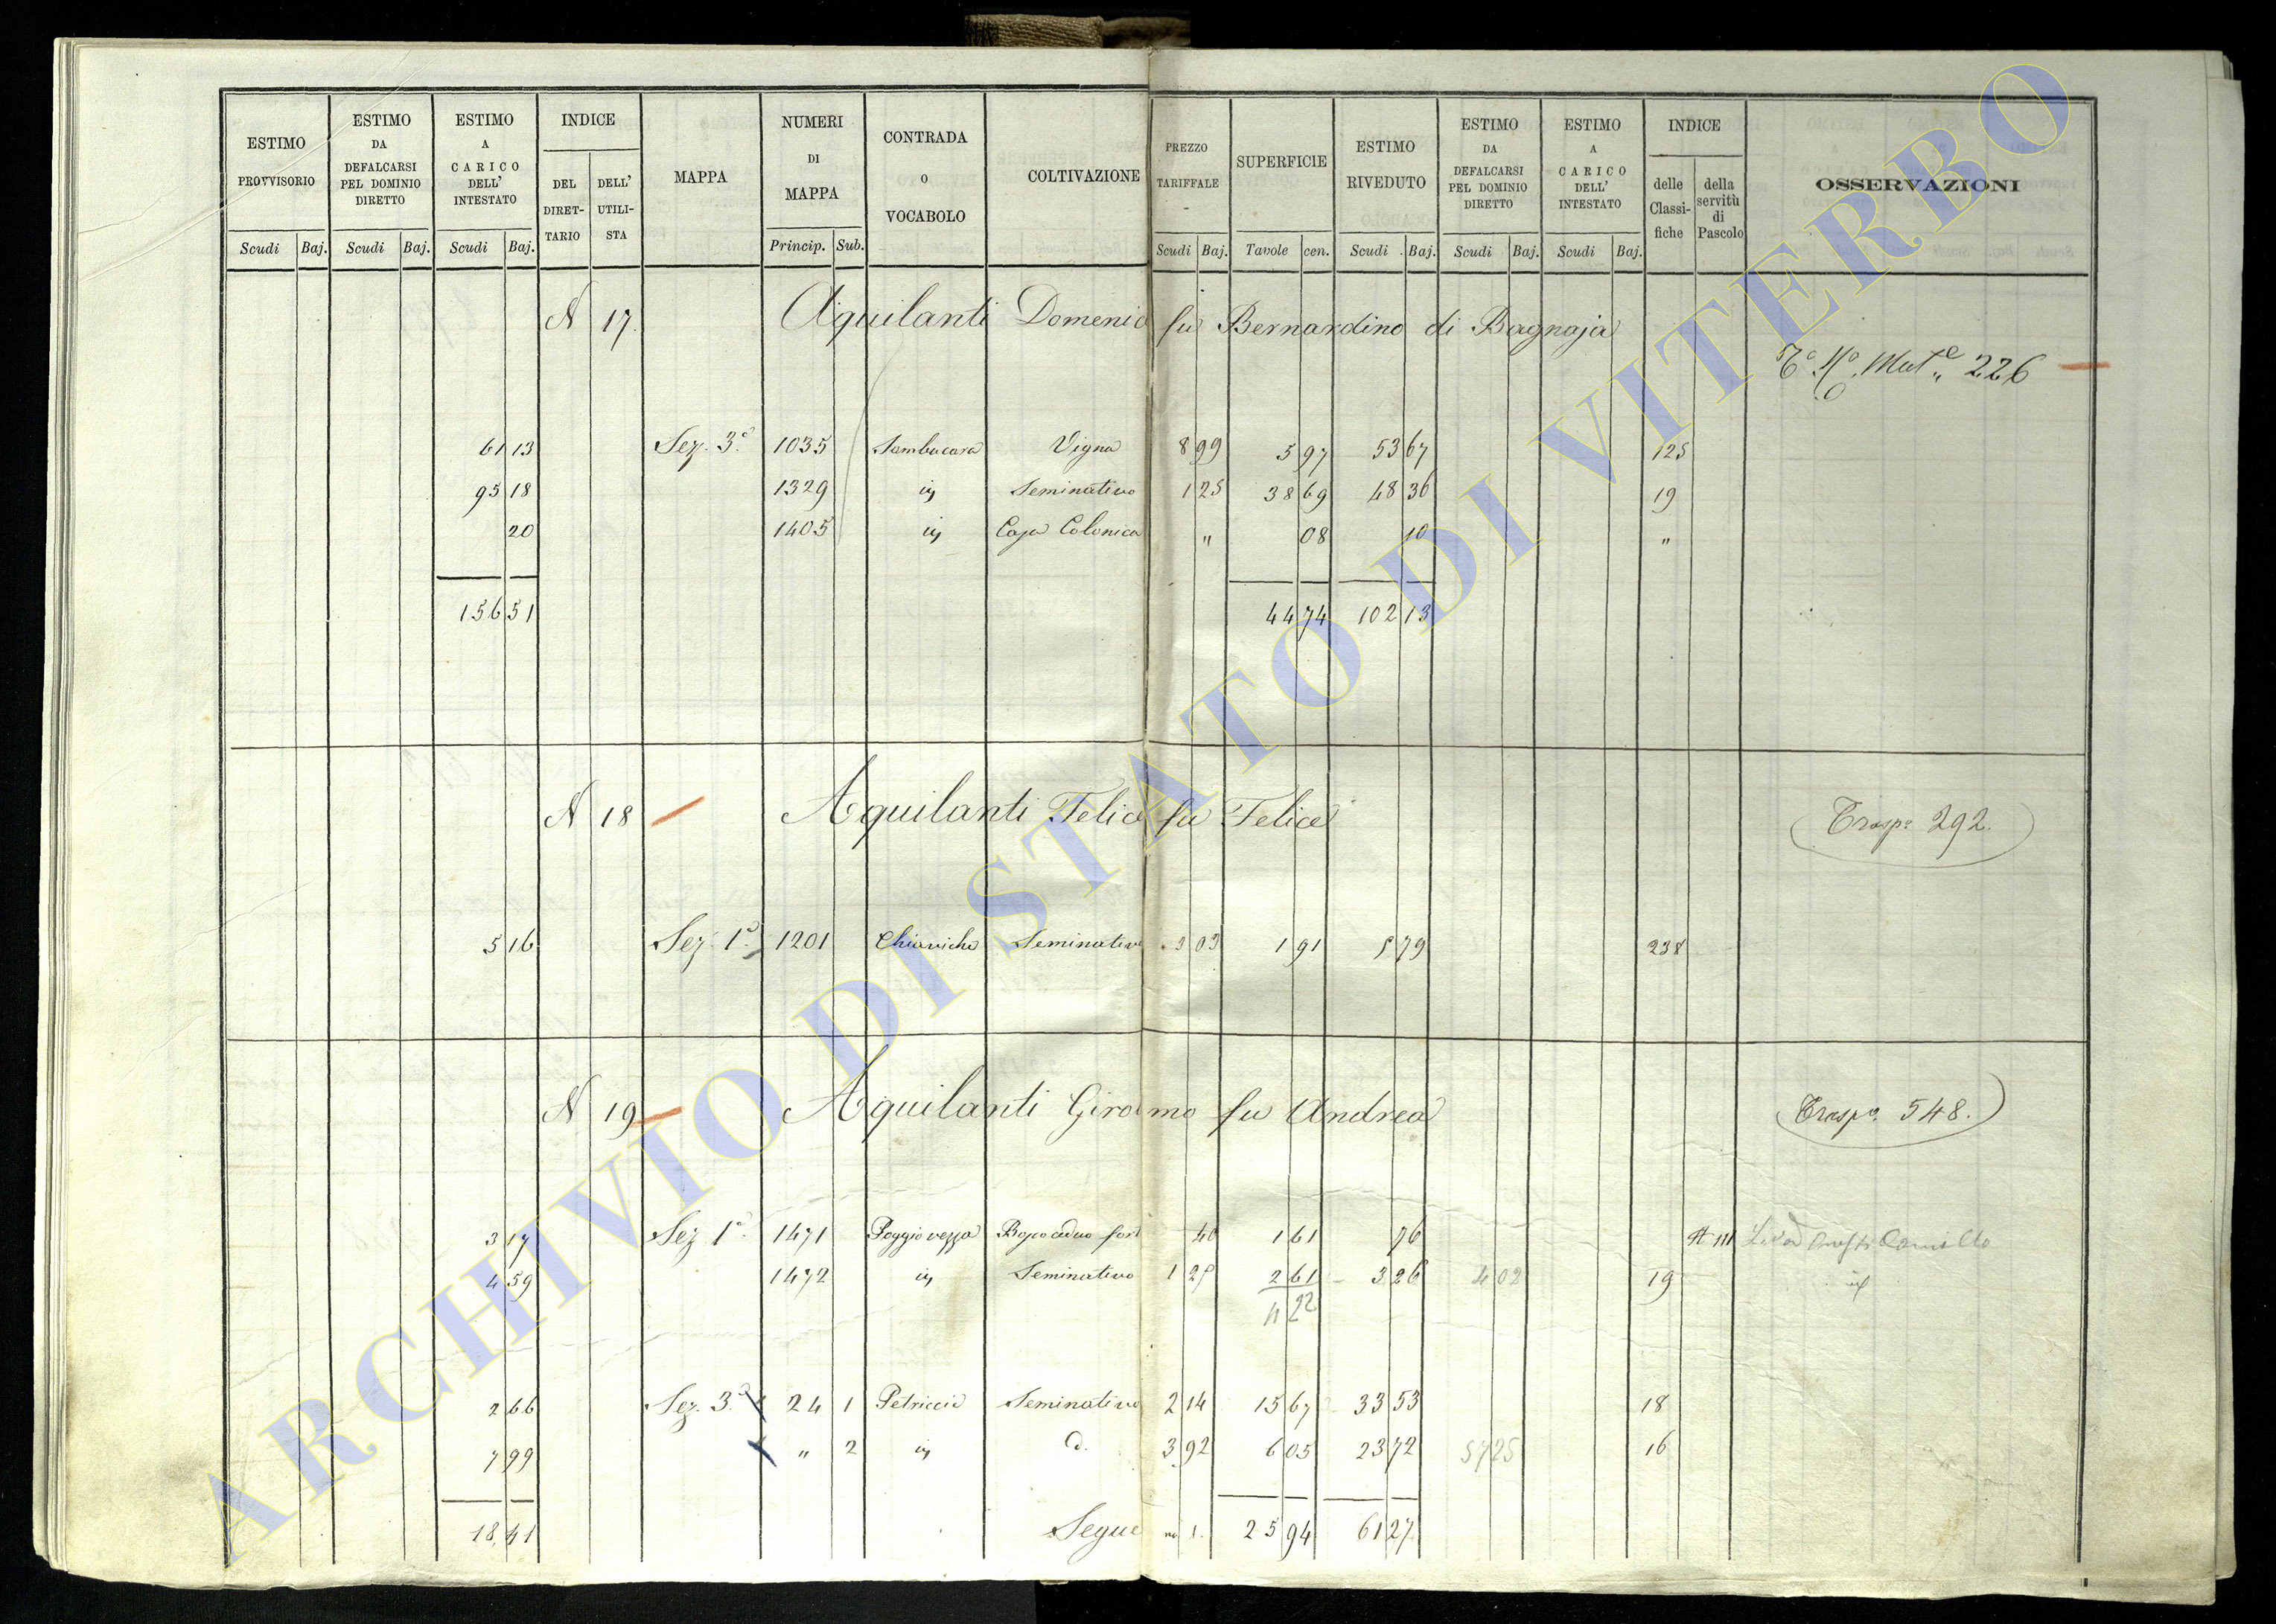 ESTIMO PROVVISORIO Scudi Baj.
ESTIMO DA DEFALCARSI PEL DOMINIO DIRETTO Scudi Baj.
ESTIMO A CARICO DELL' INTESTATO Scudi Baj.
INDICE DEL DIRET-TARIO DELL' UTILI-STA
MAPPA
NUMERI DI MAPPA Princip. Sub.
CONTRADA O VOCABOLO
COLTIVAZIONE
PREZZO TARIFFALE Scudi Baj.
SUPERFICIE Tavole cen.
ESTIMO RIVEDUTO Scudi Baj.
ESTIMO DA DEFALCARSI PEL DOMINIO DIRETTO Scudi Baj.
ESTIMO A CARICO DELL' INTESTATO Scudi Baj.
INDICE delle Classi-fiche della servitù di Pascolo
OSSERVAZIONI
N 17. Aquilanti Domenico fu Bernardino di Bagnaja
Mut.e 226
61 13 Sez. 3a. 1035 Sambucara Vigna 8 99 5 97 53 67 125
95 18 1329 is Seminativo 1 25 38 69 48 36 19
20 1405 is Casa Colonica " 08 10 "
156 51 44 74 102 13
N 18 Aquilanti Felice fu Felice Traspo 292.
5 16 Sez. 1a. 1201 Chiaviche Seminativo 3 03 1 91 5 79 238
N 19 Aquilanti Girolamo fu Andrea Traspo. 548.
3 17 Sez 1a. 1471 Poggio vezza Bosco ceduo forte 46 1 61 76
4 59 1472 is Seminativo 1 25 2 61 3 26 4 02 19
4 22
2 66 Sez. 3a 24 1 Petriccio Seminativo 2 14 15 67 33 53 18
7 99 " 2 is d. 3 92 6 05 23 72 57 25 16
18 41 Segue no 1. 25 94 61 27
ARCHIVIO DI STATO DI VITERBO